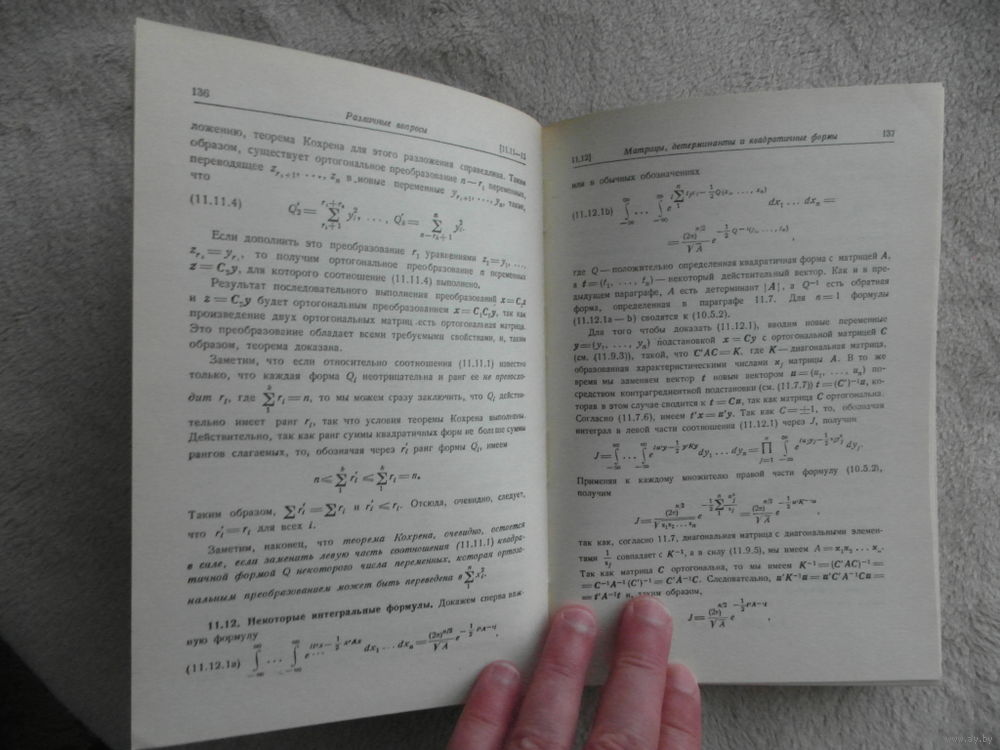 136
Различные вопросы
[11.11—12
ложению, теорема Кохрена для этого разложения справедлива. Таким
образом, существует ортогональное преобразование n — r₁ переменных,
переводящее z_{r₁+1}, ..., z_n в новые переменные y_{r₁+1}, ..., y_n, такие,
что
(11.11.4) Q'₂ = ∑ y²_i, ..., Q'_k = ∑ y²_i.
Если дополнить это преобразование r₁ уравнениями z₁ = y₁, ...,
z_{r₁} = y_{r₁}, то получим ортогональное преобразование n переменных
z = C₂y, для которого соотношение (11.11.4) выполнено.
Результат последовательного выполнения преобразований x = C₁z
и z = C₂y будет ортогональным преобразованием x = C₁C₂y, так как
произведение двух ортогональных матриц есть ортогональная матрица.
Это преобразование обладает всеми требуемыми свойствами, и, таким
образом, теорема доказана.
Заметим, что если относительно соотношения (11.11.1) известно
только, что каждая форма Q_i неотрицательна и ранг ее не превосхо-
дит r_i, где ∑ r_i = n, то мы можем сразу заключить, что Q_i действи-
тельно имеет ранг r_i, так что условия теоремы Кохрена выполнены.
Действительно, так как ранг суммы квадратичных форм не больше суммы
рангов слагаемых, то, обозначая через r'_i ранг формы Q_i, имеем
n ≤ ∑ r'_i ≤ ∑ r_i = n.
Таким образом, ∑ r'_i = ∑ r_i и r'_i ≤ r_i. Отсюда, очевидно, следует,
что r'_i = r_i для всех i.
Заметим, наконец, что теорема Кохрена, очевидно, остается
в силе, если заменить левую часть соотношения (11.11.1) квадра-
тичной формой Q некоторого числа переменных, которая ортого-
нальным преобразованием может быть переведена в ∑ x²_i.
11.12. Некоторые интегральные формулы. Докажем сперва важ-
ную формулу
(11.12.1a) ∫ ... ∫ e dx₁ ... dx_n = (2π)^{n/2} / √A e
11.12]
Матрицы, детерминанты и квадратичные формы
137
или в обычных обозначениях
(11.12.1b) ∫ ... ∫ e dx₁ ... dx_n =
= (2π)^{n/2} / √A e ,
где Q — положительно определенная квадратичная форма с матрицей A,
а t = (t₁, ..., t_n) — некоторый действительный вектор. Как и в пре-
дыдущем параграфе, A есть детерминант |A|, а Q⁻¹ есть обратная
форма, определенная в параграфе 11.7. Для n = 1 формулы
(11.12.1a — b) сводятся к (10.5.2).
Для того чтобы доказать (11.12.1), вводим новые переменные
y = (y₁, ..., y_n) подстановкой x = Cy с ортогональной матрицей C
(см. (11.9.3)), такой, что C'AC = K, где K — диагональная матрица,
образованная характеристическими числами ϰ_j матрицы A. В то же
время мы заменяем вектор t новым вектором u = (u₁, ..., u_n) по-
средством контрагредиентной подстановки (см. (11.7.7)) t = (C')⁻¹u, ко-
торая в этом случае сводится к t = Cu, так как матрица C ортогональна.
Согласно (11.7.6), имеем t'x = u'y. Так как C = ±1, то, обозначая
интеграл в левой части соотношения (11.12.1) через J, получим
J = ∫ ... ∫ e dy₁ ... dy_n = ∏ ∫ e dy_j.
Применяя к каждому множителю правой части формулу (10.5.2),
получим
J = (2π)^{n/2} / √ϰ₁ϰ₂ ... ϰ_n e = (2π)^{n/2} / √A e
так как, согласно 11.7, диагональная матрица с диагональными элемен-
тами 1/ϰ_j совпадает с K⁻¹, а в силу (11.9.5), мы имеем A = ϰ₁ϰ₂ ... ϰ_n.
Так как матрица C ортогональна, то мы имеем K⁻¹ = (C'AC)⁻¹ =
= C⁻¹A⁻¹(C')⁻¹ = C'A⁻¹C. Следовательно, u'K⁻¹u = u'C'A⁻¹Cu =
= t'A⁻¹t и, таким образом,
J = (2π)^{n/2} / √A e ,
www.ay.by